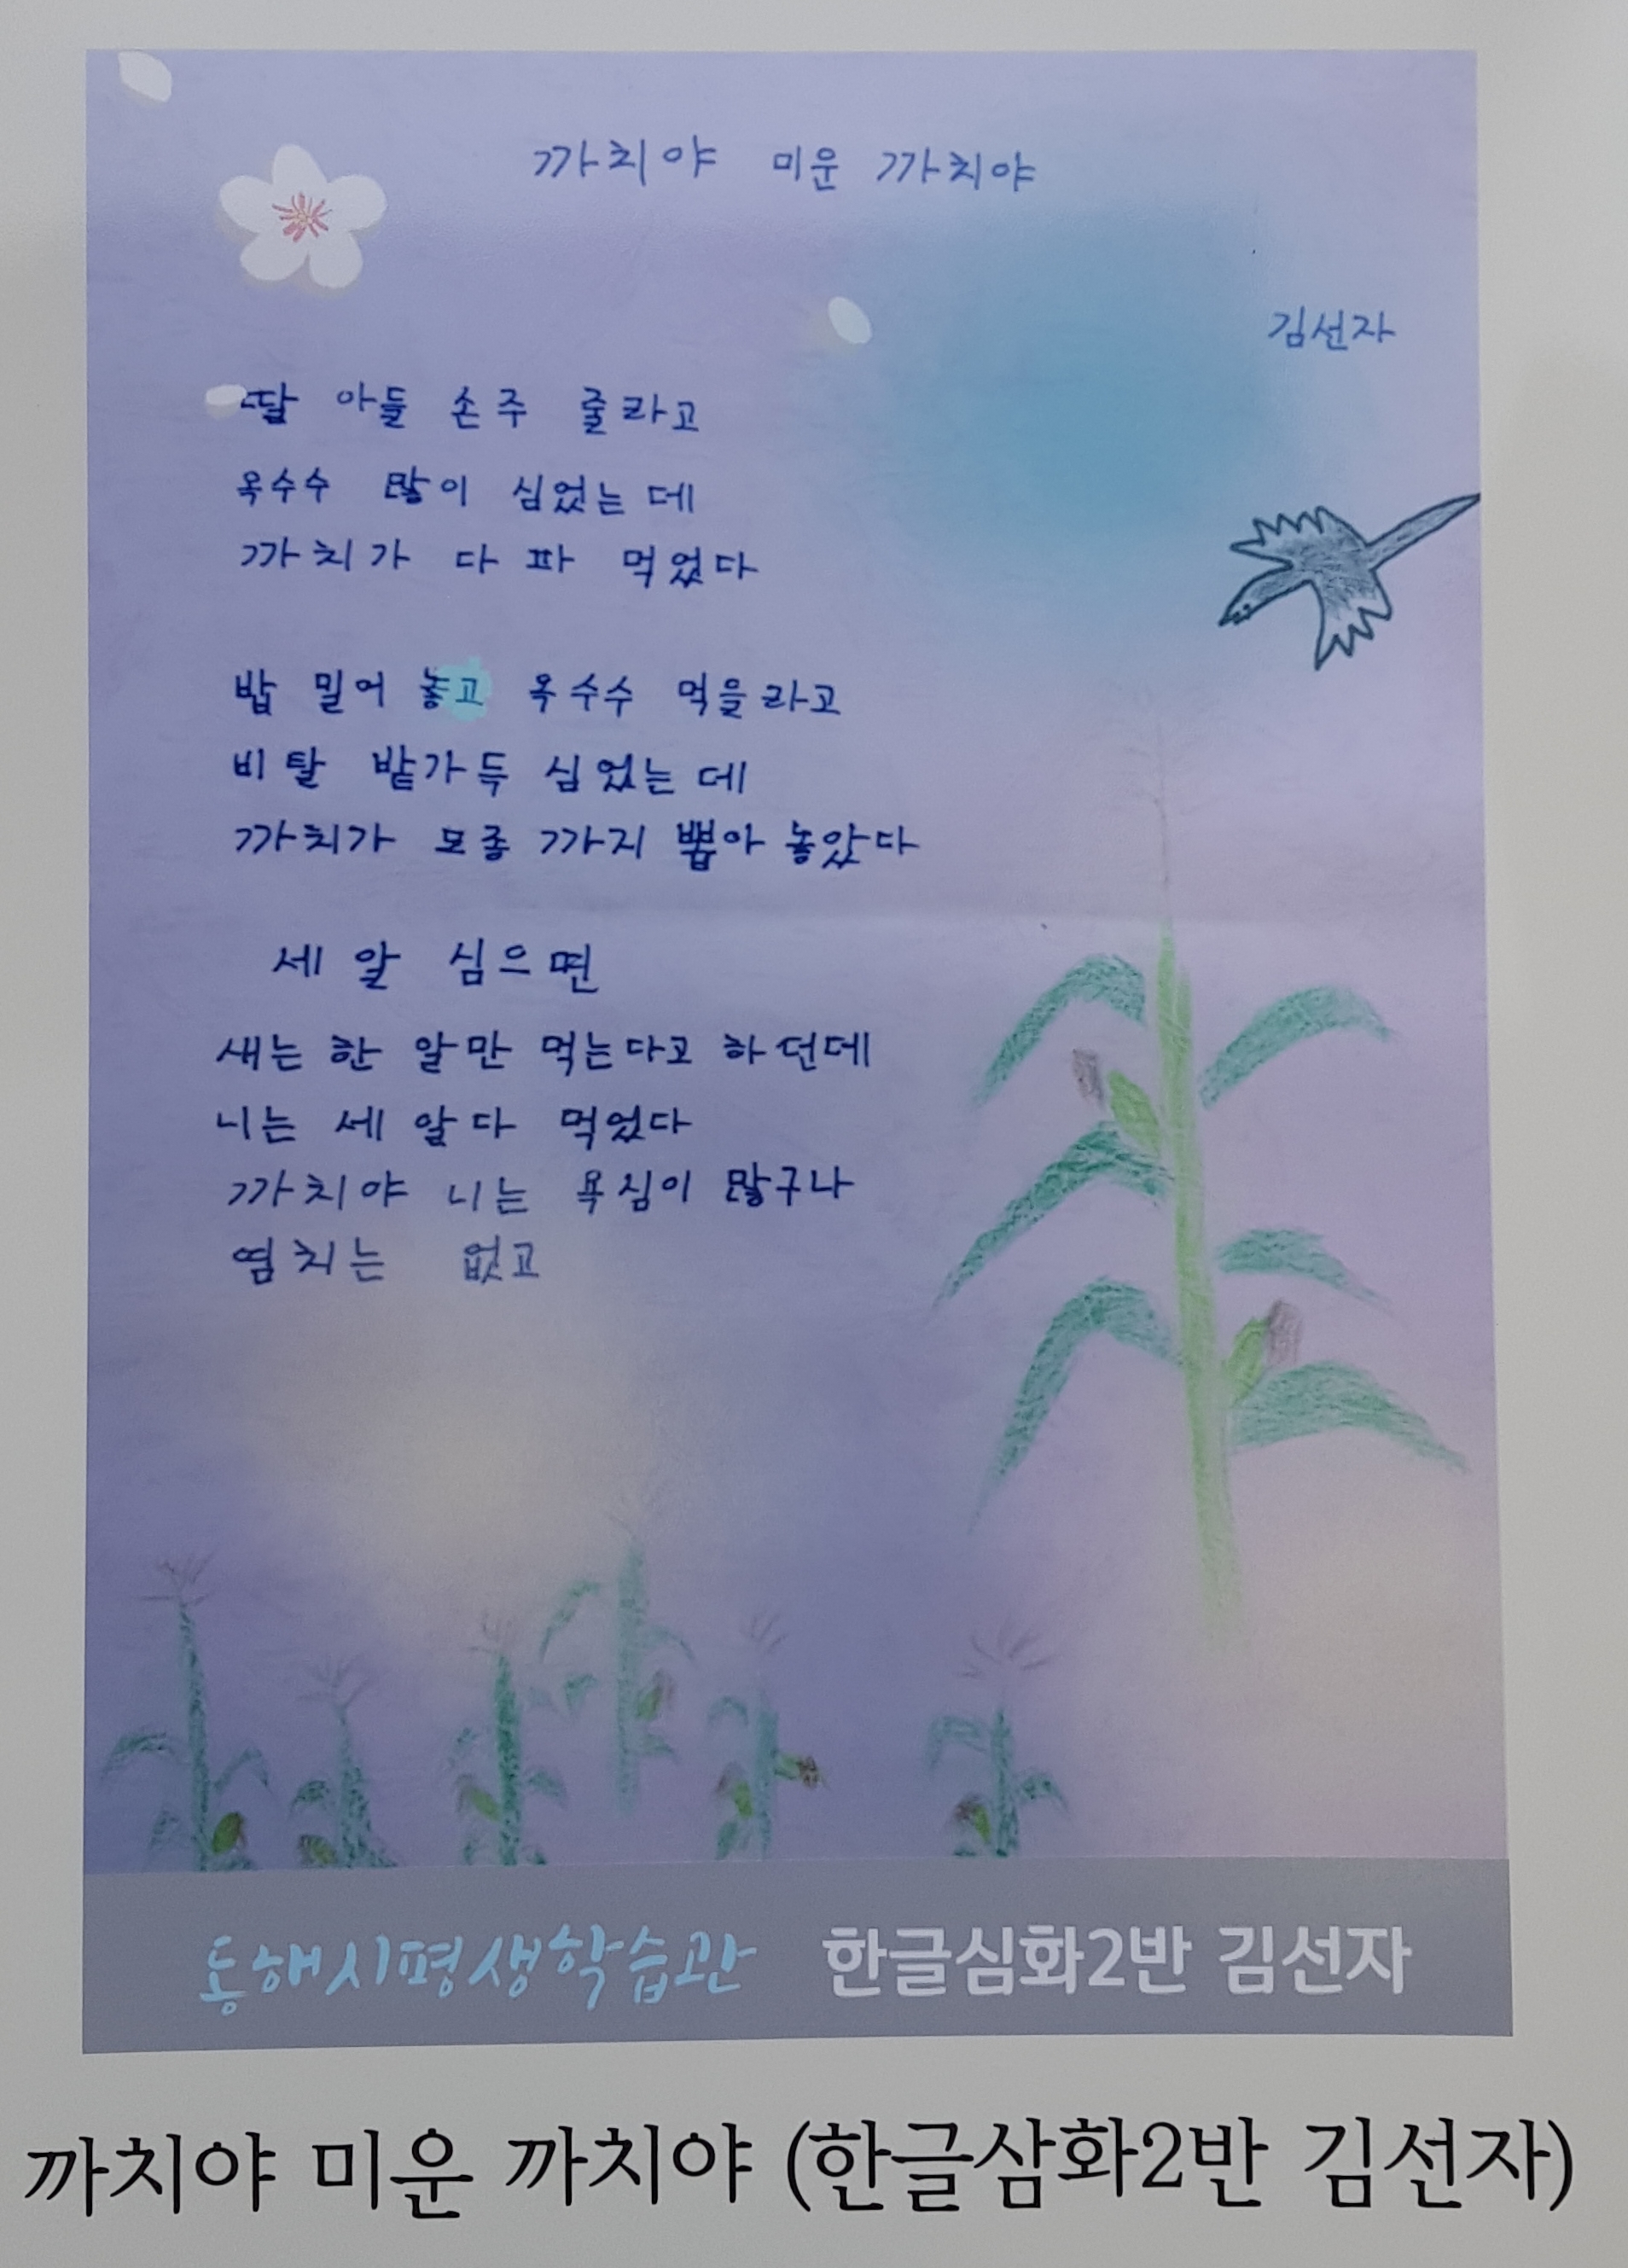 까치야 미운 까치야
김선자
딸 아들 손주 줄라고
옥수수 많이 심었는 데
까치가 다 파 먹었다
밥 밀어 놓고 옥수수 먹을라고
비탈 밭가득 심었는 데
까치가 모종 까지 뽑아 놓았다
세 알 심으면
새는 한 알만 먹는다고 하던데
니는 세 알다 먹었다
까치야 니는 욕심이 많구나
염치는 없고
동해시평생학습관 한글심화2반 김선자
까치야 미운 까치야 (한글삼화2반 김선자)